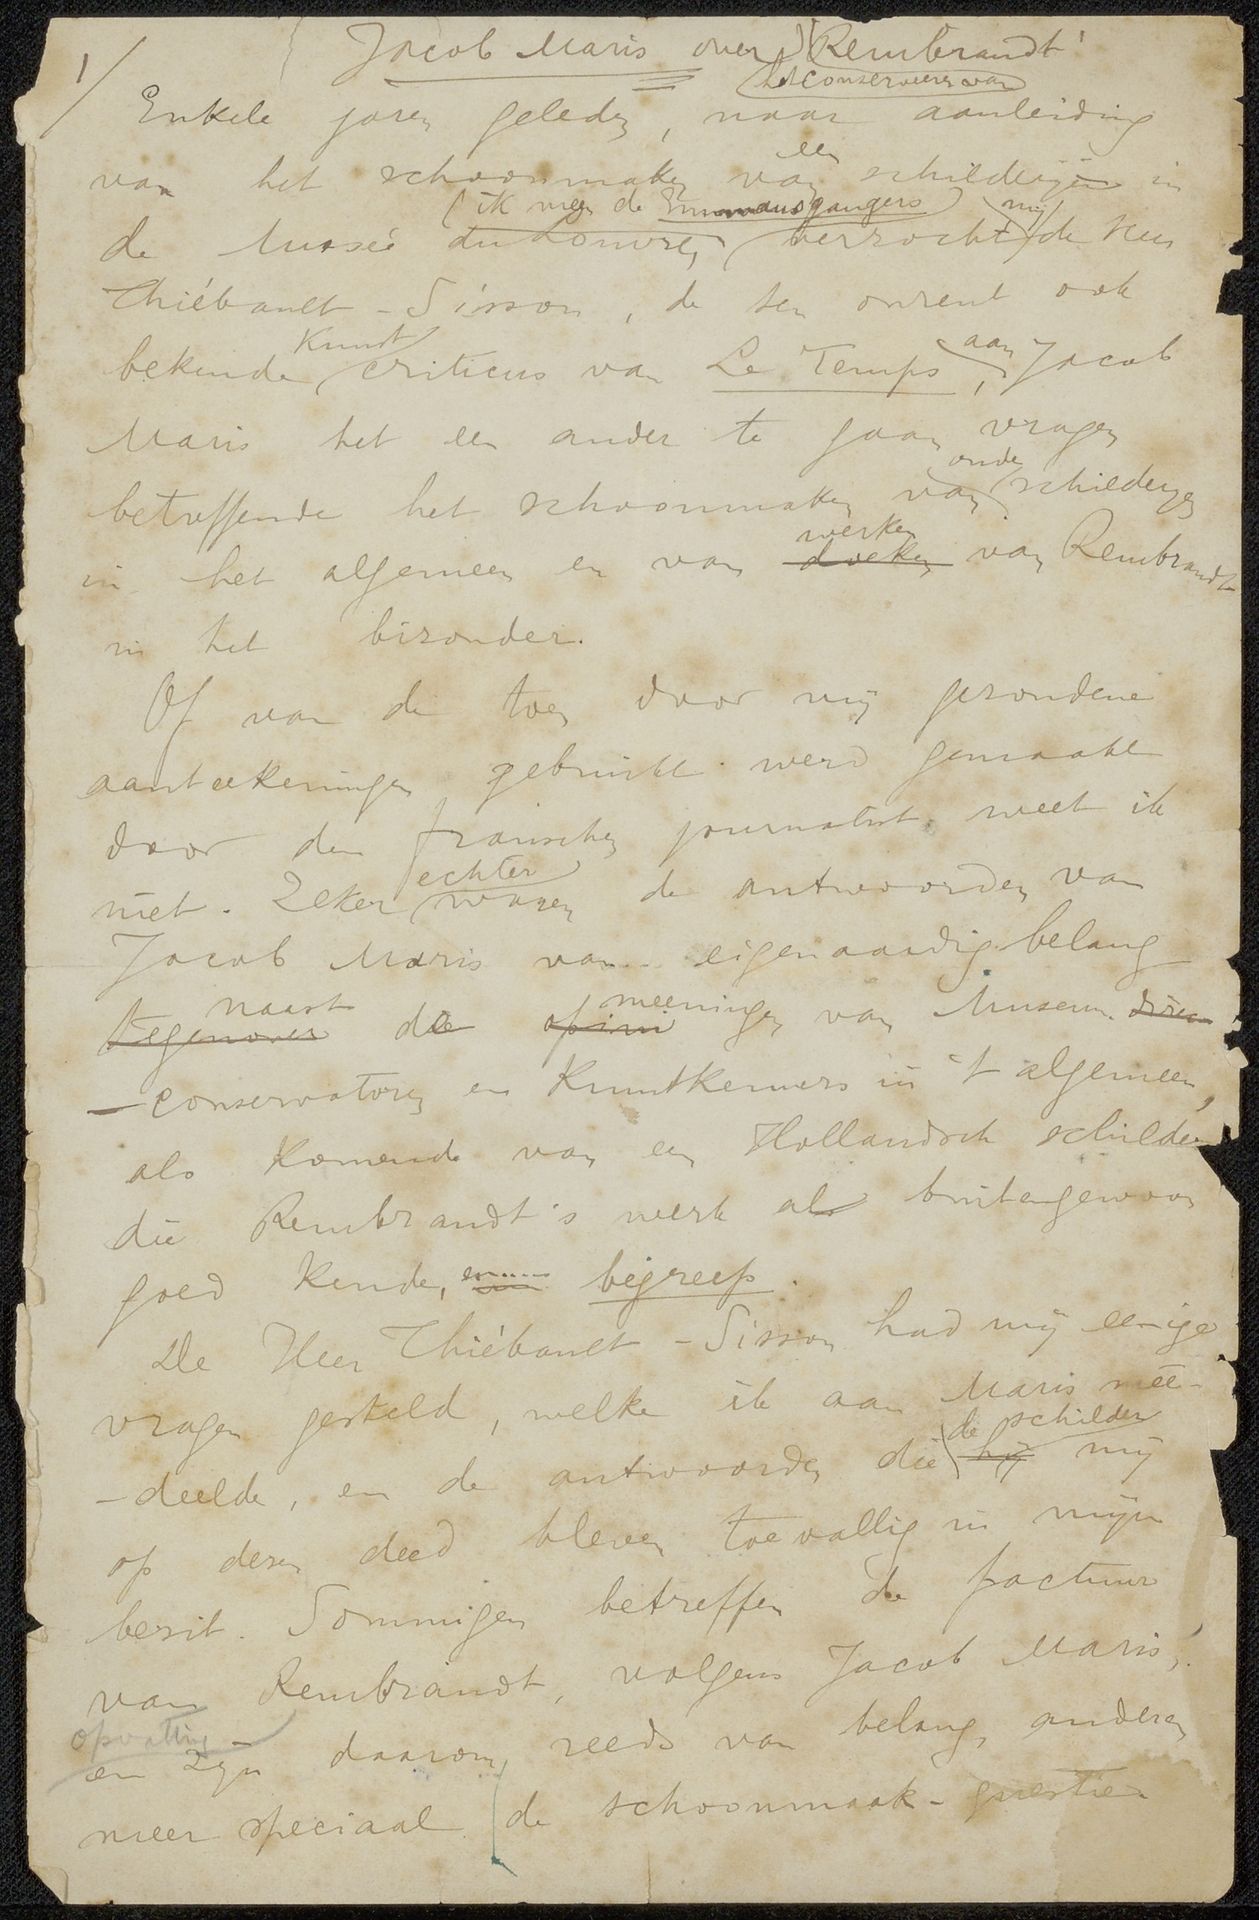 1/
Jacob Maris over Rembrandt
het conserveeren van
Enkele jaren geleden, naar aanleiding
een
van het schoonmaken van schilderijen in
(ik meen de Emmausgangers) mij
de Musée du Louvre, verzocht de Heer
Thiébault-Sisson, de ten onzent ook
Kunst aan
bekende criticus van Le Temps, Jacob
Maris het een ander te gaan vragen
oude
betreffende het schoonmaken van schilderyen
werken
in het algemeen en van doeken van Rembrandt
in het bizonder.
Of van de toen door mij gezondene
aanteekeningen gebruikt werd gemaakt
door den franschen journalist weet ik
echter
niet. Zeker waren de antwoorden van
Jacob Maris van eigenaardig belang
naast meeningen
tegenover de opini van Museum direc
-conservatoren en Kunstkenners in 't algemeen,
als komende van een Hollandsch schilder
die Rembrandt's werk al buitengewoon
goed kende, en begreep.
De Heer Thiébault-Sisson had mij eenige
vragen gesteld, welke ik aan Maris mee-
de schilder
-deelde, en de antwoorden die hij mij
op dezen deed bleven toevallig in mijn
bezit. Sommigen betreffen de factuur
van Rembrandt, volgens Jacob Maris'
opvatting
en zyn daarom reeds van belang, anderen
meer speciaal de schoonmaak-questie